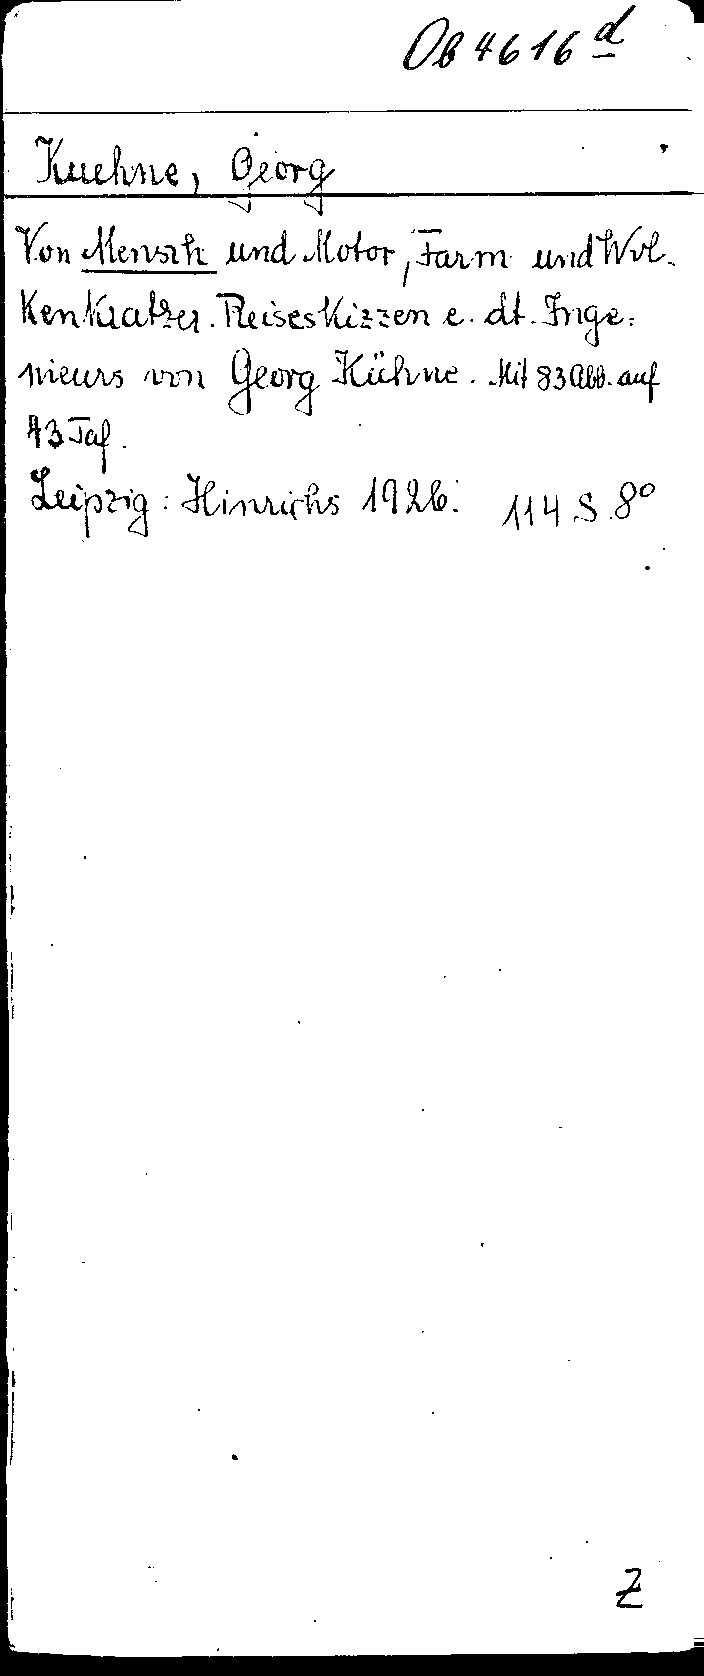 Ob 4616 d
Kuehne, Georg
Von Mensch und Motor, Farm und Wol-
kenkratzer. Reiseskizzen e. dt. Inge-
nieurs von Georg Kühne. Mit 83 Abb. auf
43 Taf.
Leipzig: Hinrichs 1926. 114 S. 8°
Z